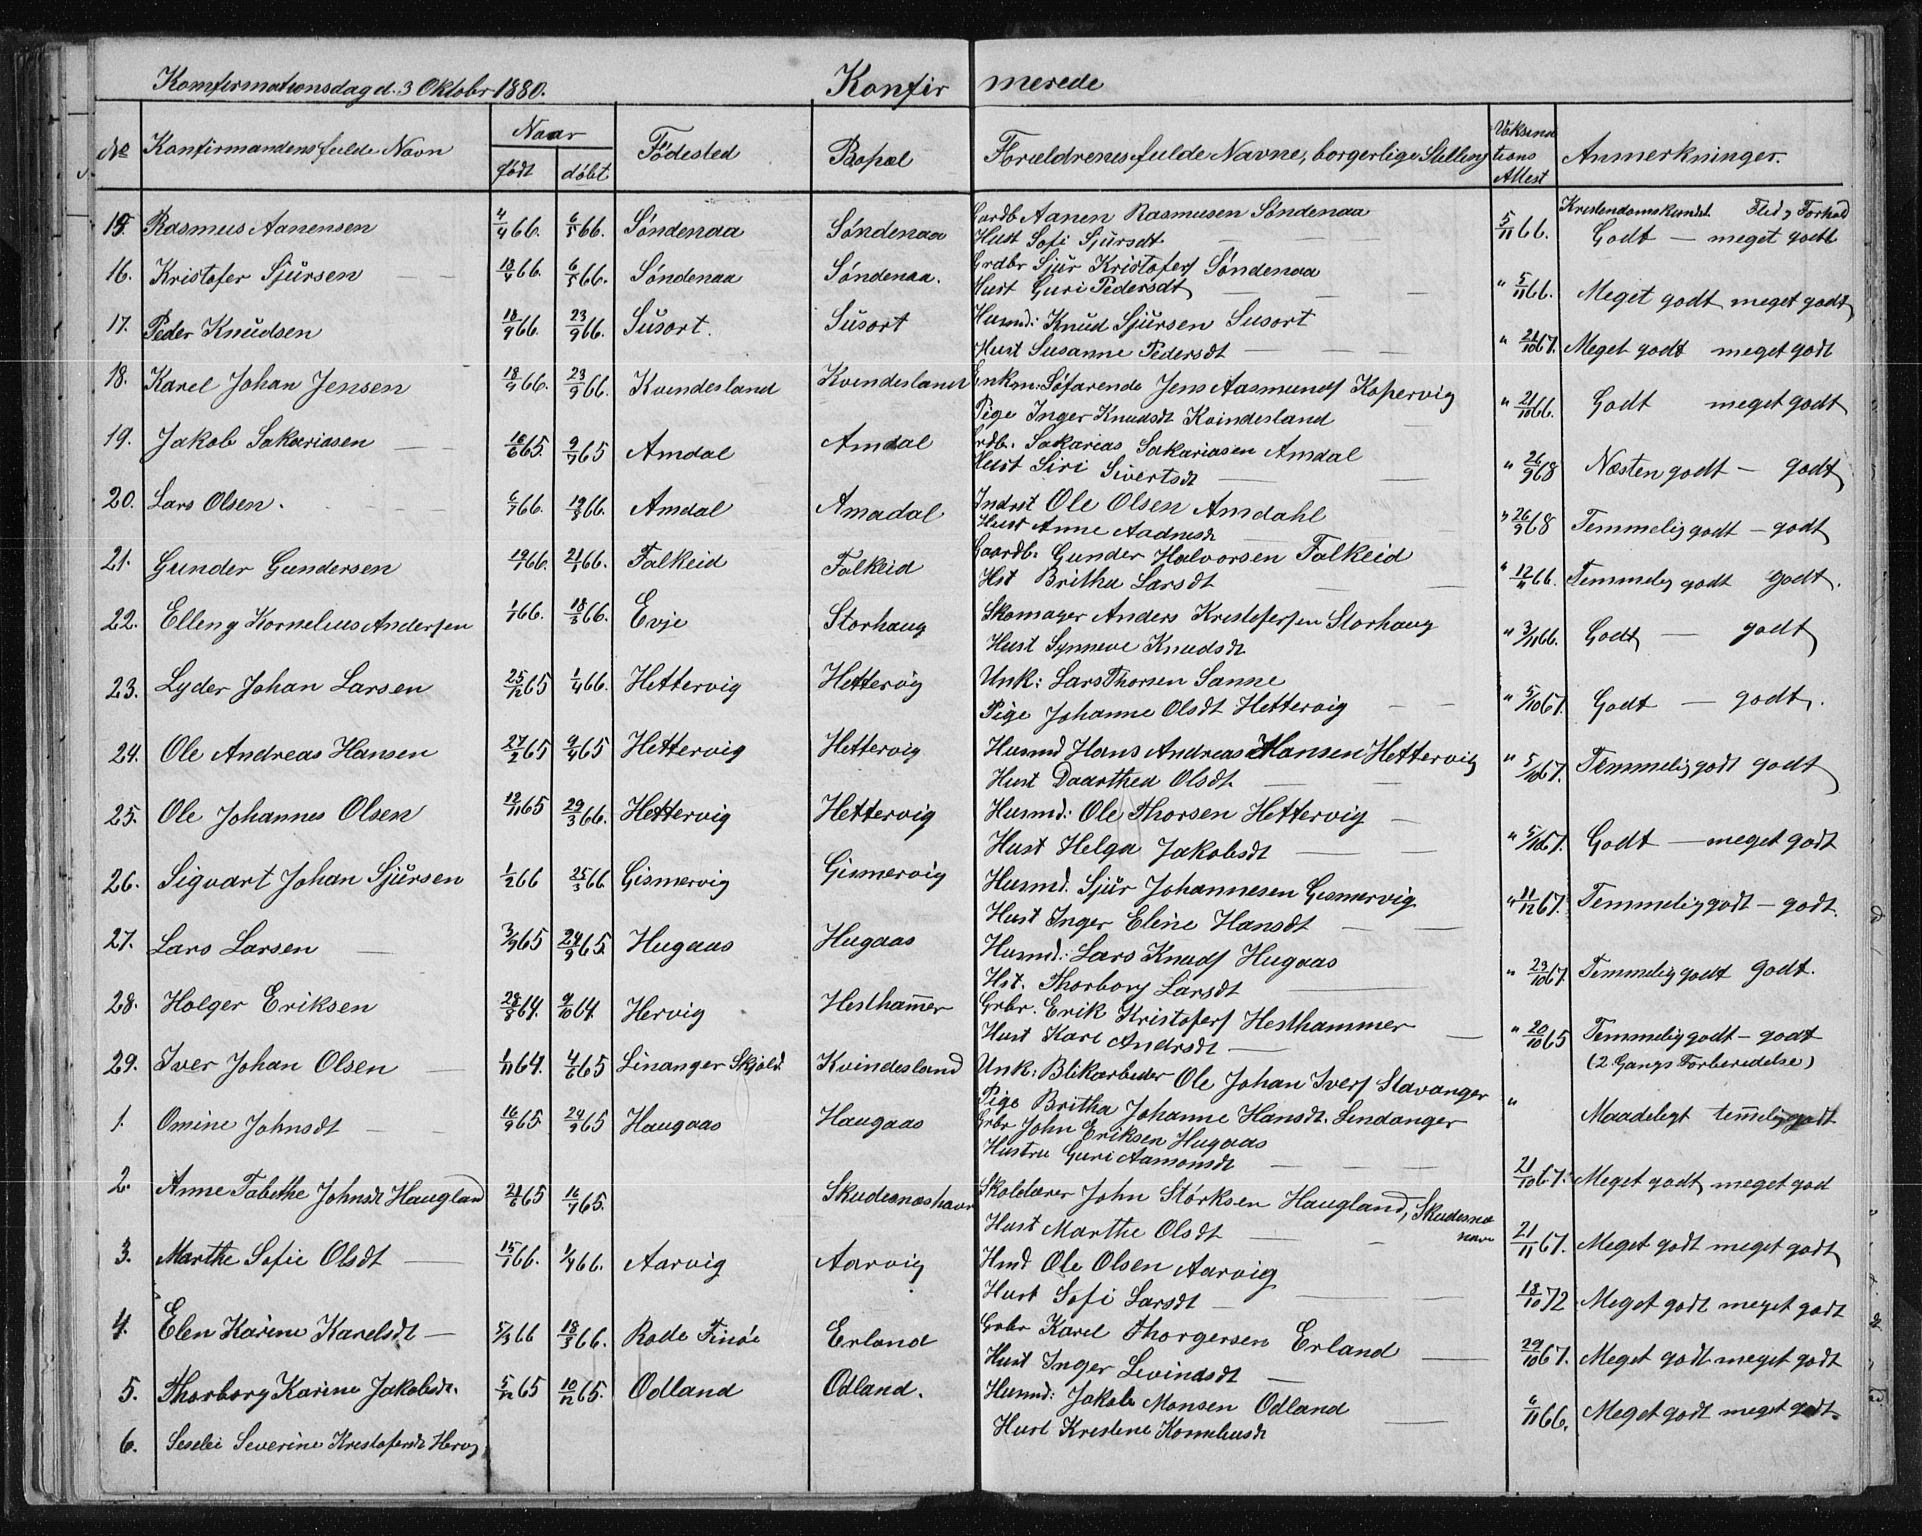 Komfirmationsdag d. 3 Oktobr 1880. Konfir merede
No Konfirmandens fulde Navn Naar født døbt Födested Bopæl Forældrenes fulde Navne, borgerlige Stilling Vaksina tions Attest Anmerkninger.
Kristendomskundsk. Flid og Forhold
15. Rasmus Aanensen 4/4 66. 6/5 66. Søndenaa Søndenaa Gardb Aanen Rasmusen Søndenaa 5/11 66. Godt — meget godt
Hust Sofi Sjursdt
16. Kristofer Sjürsen 18/4 66. 6/5 66. Søndenaa Søndenaa. Grdbr Sjur Kristofers Søndenaa " 5/11 66. Meget godt meget godt
Hust Guri Pedersdt
17. Peder Knüdsen 18/9 66. 23/9 66. Süsort. Süsort Husmd: Knüd Sjürsen Susort " 21/10 67. Meget godt meget godt
Hust Susanne Pedersdt
18. Karel Johan Jensen 18/9 66. 23/9 66. Kvindesland Kvindesland Enkm: Søfarende Jens Aasmunds Kopervig " 21/10 66. Godt meget godt
Pige Inger Knudsdt Kvindesland
19. Jakob Sakariasen 16/6 65. 9/7 65 Amdal Amdal Grdb. Sakarias Sakariasen Amdal " 26/9 68 Næsten godt — godt
Hust Siri Sivertsdt
20. Lars Olsen. 6/7 66. 19/8 66. Amdal Amadal Indrst Ole Olsen Amdahl " 26/9 68 Temmelig godt — godt
Hust Anne Aadnesdt
21. Gunder Gundersen 19/ 66. 21/ 66. Falkeid Falkeid Gaardb. Gunder Halvorsen Falkeid " 12/11 66. Temmelig godt Godt.
Hst Britha Larsdt
22. Elleng Kornelius Andersen 1/1 66. 18/3 66. Evje Storhaug Skomager Anders Kristofersen Storhaug " 3/11 66. Godt — godt
Hust Synneve Knudsdt
23. Lyder Johan Larsen 25/12 65 1/4 66. Hettervig Hettervig Unk: Lars Thorsen Sanne " 5/10 67. Godt — godt.
Pige Johanne Olsdt Hettervig
24. Ole Andreas Hansen 27/2 65 9/4 65 Hettervig Hettervig Husmd Hans Andreas Hansen Hettervig " 5/10 67. Temmelig godt godt
Hust Daarthea Olsdt.
25. Ole Johannes Olsen 12/11 65 29/3 66. Hettervig Hettervig Husmd: Ole Thorsen Hettervig " 5/10 67. Godt — meget godt
Hust Helga Jakobsdt
26. Sigvart Johan Sjürsen 1/2 66 25/3 66 Gismervig Gismervig Husmd. Sjür Johannesen Gismervig " 11/12 67. Temmelig godt — godt
Hust Inger Eline Hansdt
27. Lars Larsen 3/9 65 24/9 65. Hugaas Hugaas Husmd: Lars Knuds Hugaas " 23/10 67. Temmelig godt Godt.
Hst. Thorborg Larsdt
28. Holger Eriksen 28/8 64. 9/10 64. Hervig Hesthamer Grbr. Erik Kristofers Hesthammer " 20/10 65 Temmelig godt — godt
Hust Kari Andrsdt (2 Gangs Forberedelse)
29. Iver Johan Olsen 1/11 64. 4/6 65 Linanger Skjold. Kvindesland Unk: Blikarbeider Ole Johan Ivers Stavanger " Maadeligt temmelig godt
Pige Britha Johanne Hansdt. Lindanger
1. Omine Johnsdt 16/9 65. 24/9 65 Haugaas Haugaas Grbr John Eriksen Hugaas 21/10 67. Meget godt meget god
Hustru Guri Aamonsdt
2. Anne Tabethe Johnsdt Haugland 24/6 65 16/7 65. Skudesnæshavn Skolelærer John Størksen Haugland, Skudesnæs havn 21/11 67. Meget godt meget godt
Hust Marthe Olsdt
3. Marthe Sofie Olsdt 15/1 66. 1/4 66. Aarvig Aarvig Hmd Ole Olsen Aarvig 18/10 72 Meget godt meget godt
Hust Sofi Larsdt
4. Elen Karine Karelsdt 5/3 66 18/3 66. Rade Finöe Erland Grbr Karel Thorgersen Erland 29/10 67. Meget godt meget godt
Hust Inger Levindsdt
5. Thorborg Karine Jakobsdt. 5/12 65 10/12 65. Odland Odland. Husmd: Jakob Monsen Odland 6/11 66. Meget godt meget godt
Hust Kristene Korneliusdt
6. Seselei Severine Kristofersdt Hervg